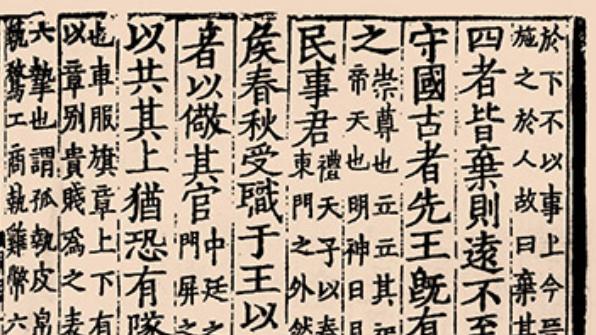 於下不以事上今晉
施之於人故曰棄其
四者皆棄則遠不至
守國古者先王旣有
之
崇尊也立立其
帝天也明神日月
民事君
禮天子以春
東門之外然
矦春秋受職于王以
者以儆其官
中廷之
門屏之
以共其上猶恐有
也車服旗章上下有
以章别貴賤爲之表
六摯也謂孤執皮帛
執鶩工商執雞幣六